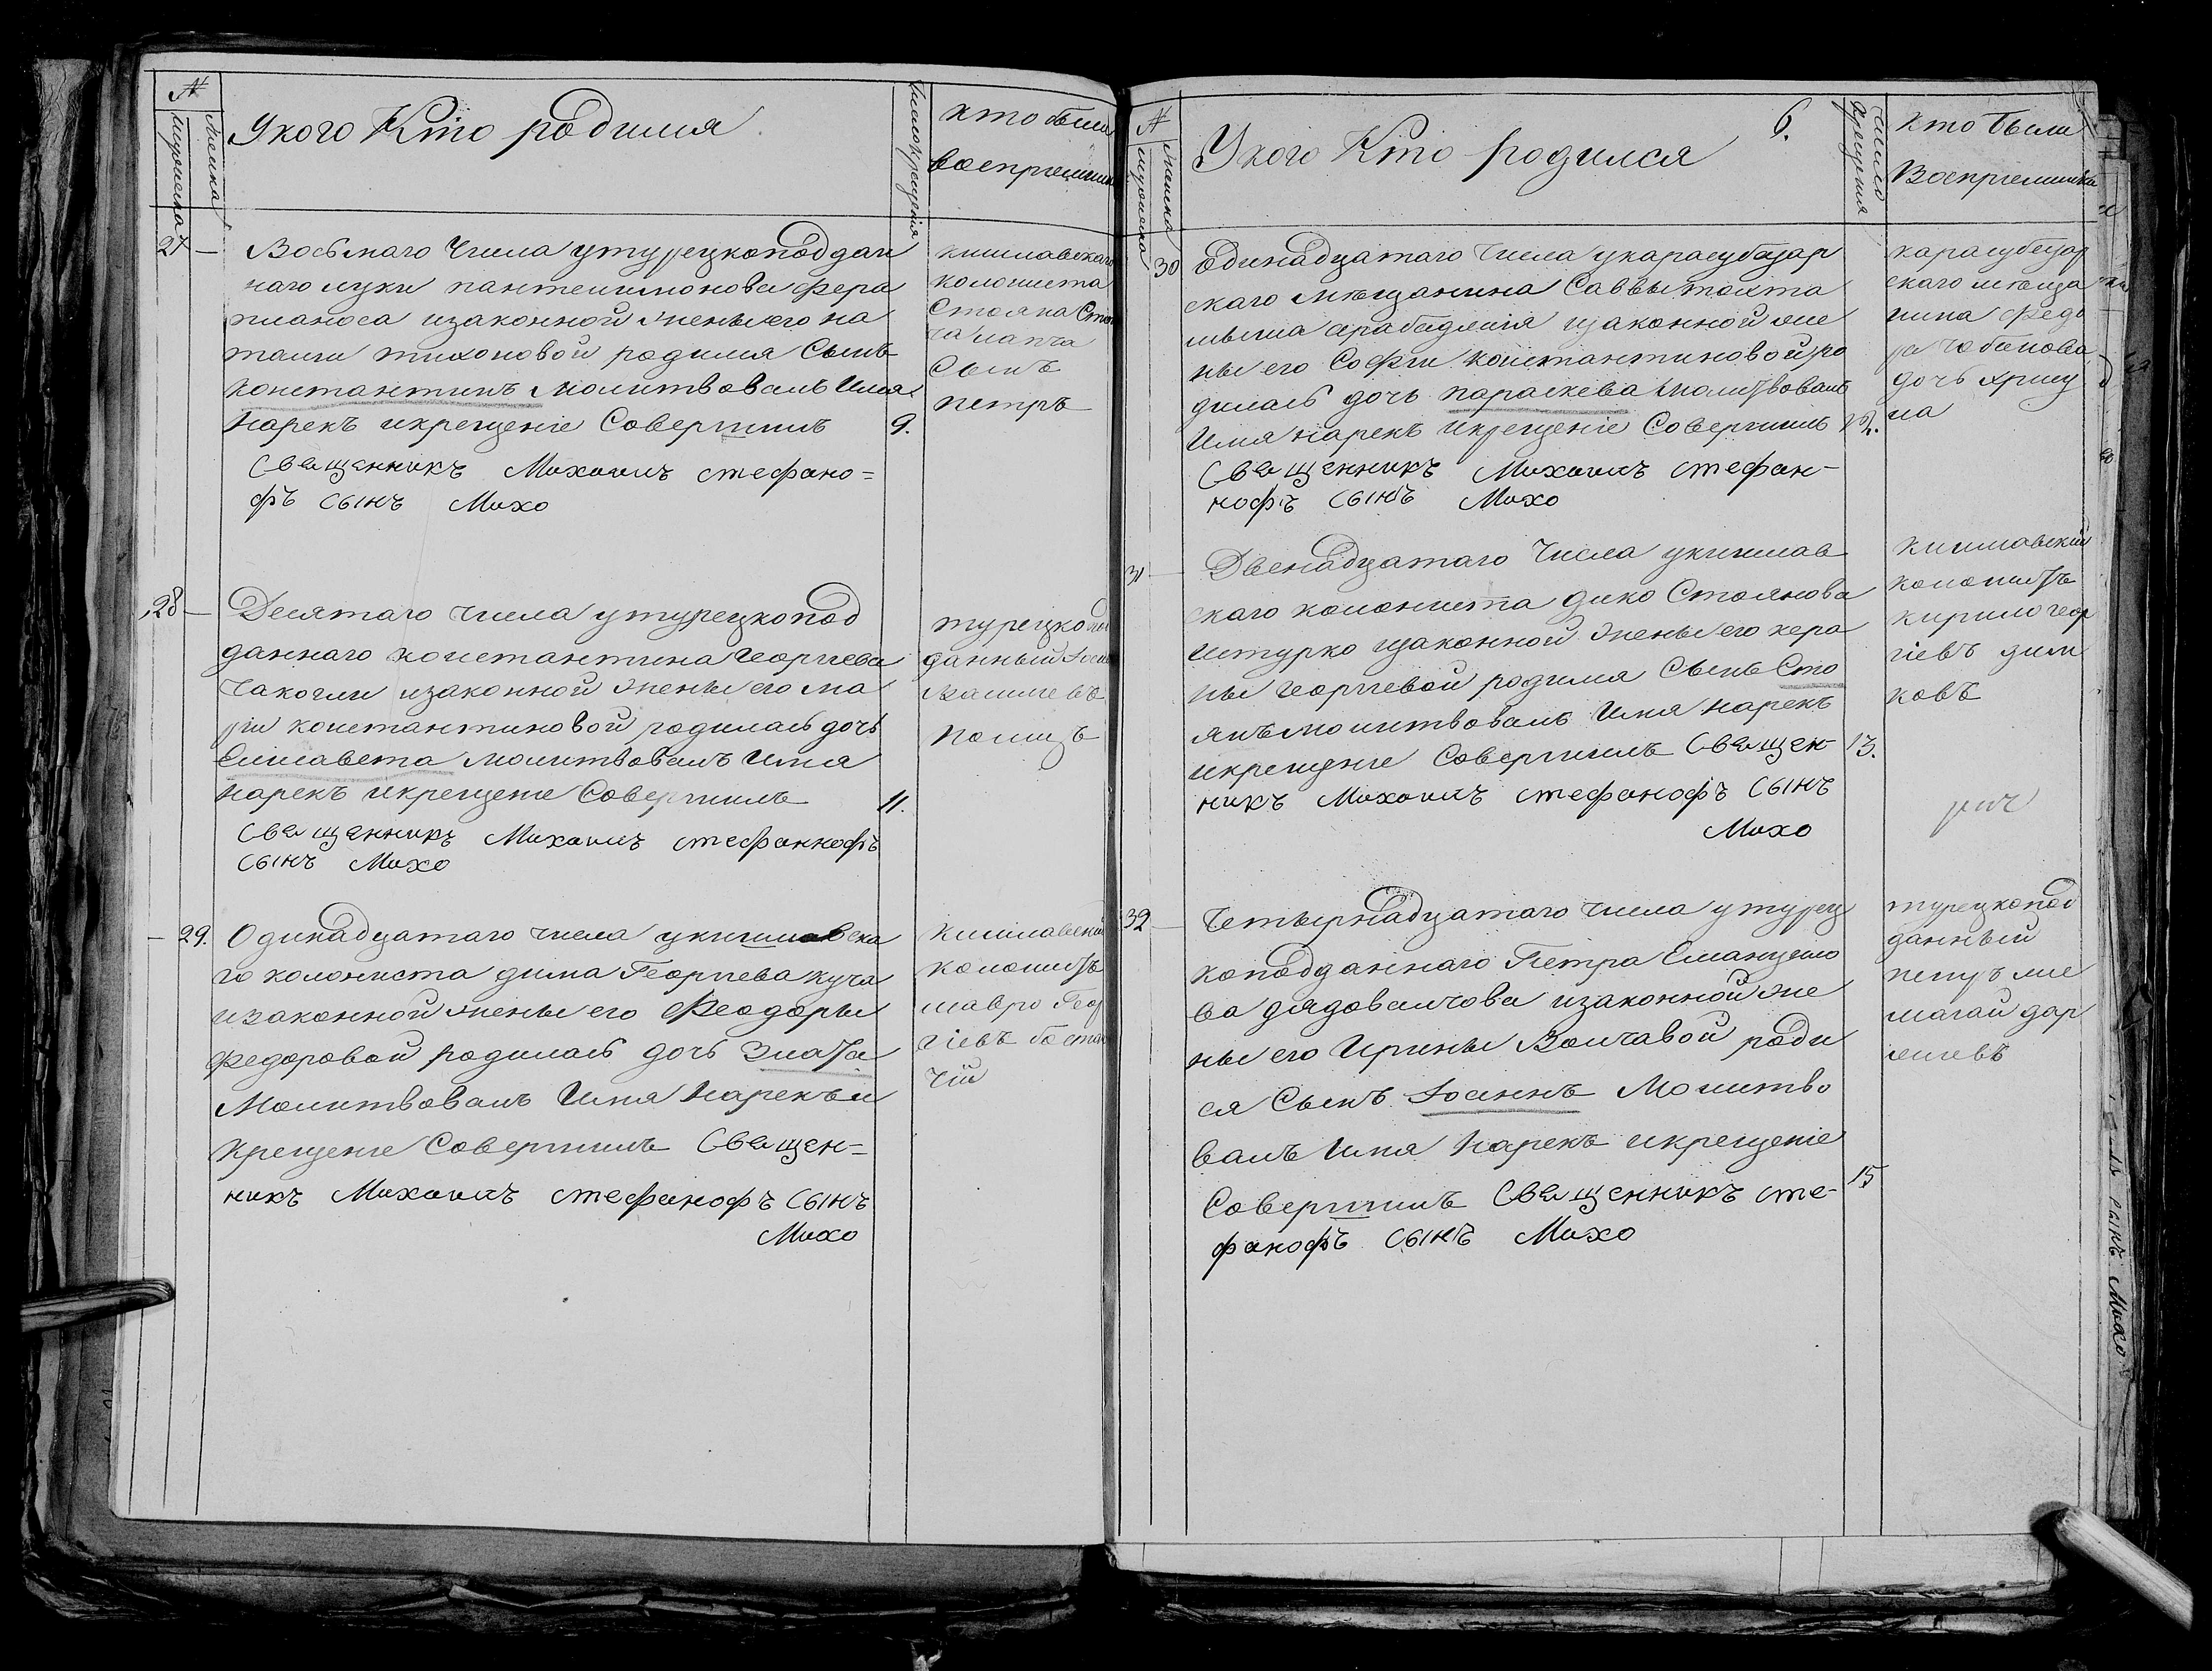 №
мужеска
женска
У кого Кто родился
число крещения
кто были
восприемники
27
Восьмаго Числа у турецкоподдан
наго луки пантелимонова фера
пианоса и законной жены его на
талии тихоновой родился Сынъ
константинъ молитвовалъ Имя
нарекъ и крещенiе Совершилъ
9.
Священникъ Михаилъ стефано=
фъ сынъ Михо
кишлавскаго
колониста
Стояна
Сынъ
петръ
28
Десятаго числа у турецкопод
даннаго константина Георгiева
чакогли и законной жены его ма
рiи константиновой родилась дочь
Елисавета молитвовалъ Имя
нарекъ и крещенiе Совершилъ
11.
Священникъ Михаилъ стефаннофъ
сынъ Михо
турецкопод
данный
29.
Одинадцатаго числа у кишлавска
го колониста дима Георгiева куча
и законной жены его Феодоры
Федоровой родилась дочь Злата
Молитвовалъ Имя Нарекъ и
крещенiе Совершилъ Священ=
никъ Михаилъ стефанофъ сынъ
Михо
кишлавскiй
колонистъ
мавро Геор
гiевъ бостан
чiй
№
мужеска
женска
У кого Кто родился
6.
число
крещения
кто были
Восприемника
30
Одинадцатаго Числа у карасубазар
скаго мѣщанина Саввы тохта
мыша арабаджiя и законной же
ны его Софiи константиновой ро
дилась дочь параскева Молитвовалъ
Имя нарекъ и крещенiе Совершилъ
12.
Священникъ Михаилъ стефан-
нофъ сынъ Михо
карасубазар
скаго мѣща
нина Федо
ра чобанова
дочь хрису
ла
31
Двенадцатаго Числа у кишлав
скаго колониста дико Стоянова
иштурко и законной жены его кера
ны Георгiевой родился Сынъ Сто
янъ молитвовалъ Имя нарекъ
и крещенiе Совершилъ Священ-
13.
никъ Михаилъ стефанофъ сынъ
Михо
кишлавскiй
колонистъ
кирило геор
гiевъ дим
ковъ
32
Четырнадцатаго числа у турец
коподданнаго Петра
ва дядовалчова и законной же
ны его Ирины Волчавой роди
ся Сынъ Iоаннъ Молитво
валъ Имя Нарекъ и крещенiе
15
Совершилъ Священникъ сте-
фанофъ сынъ Михо
турецкопод
данный
сынъ Михо